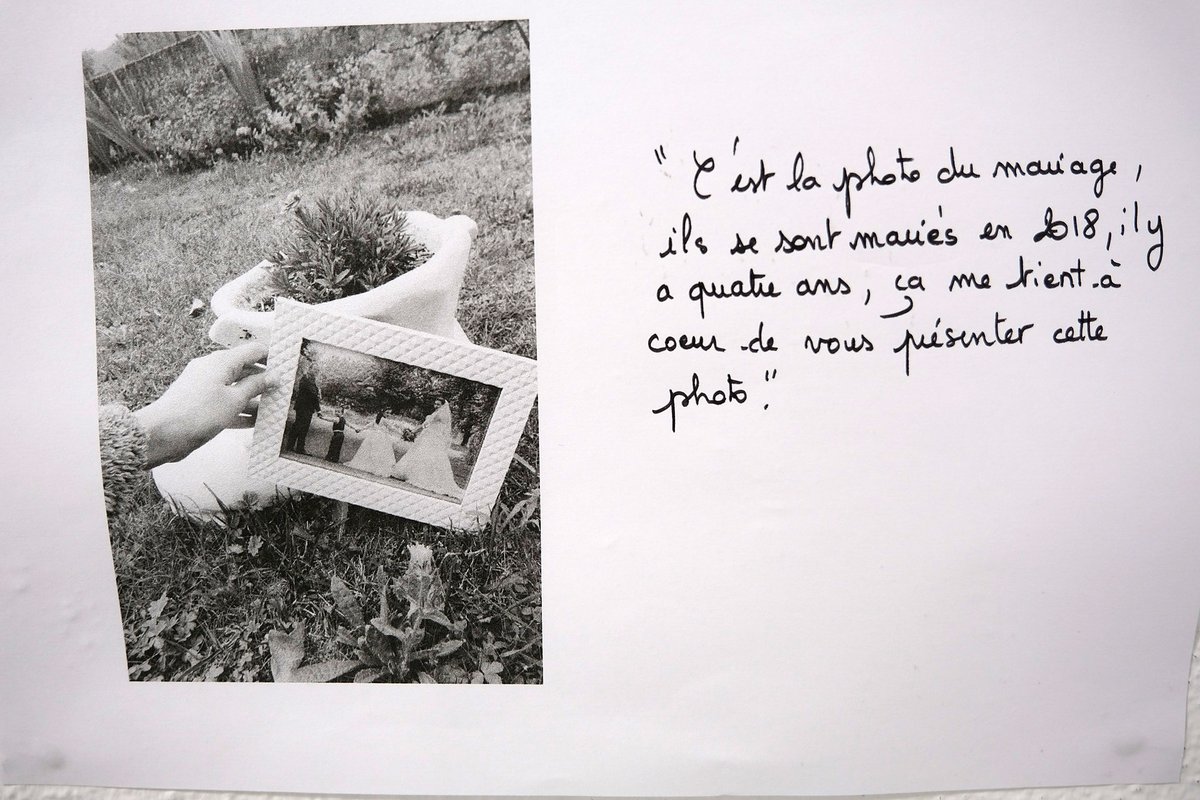 " C'est la photo du mariage,
ils se sont mariés en 2018, il y
a quatre ans, ça me tient à
coeur de vous présenter cette
photo."